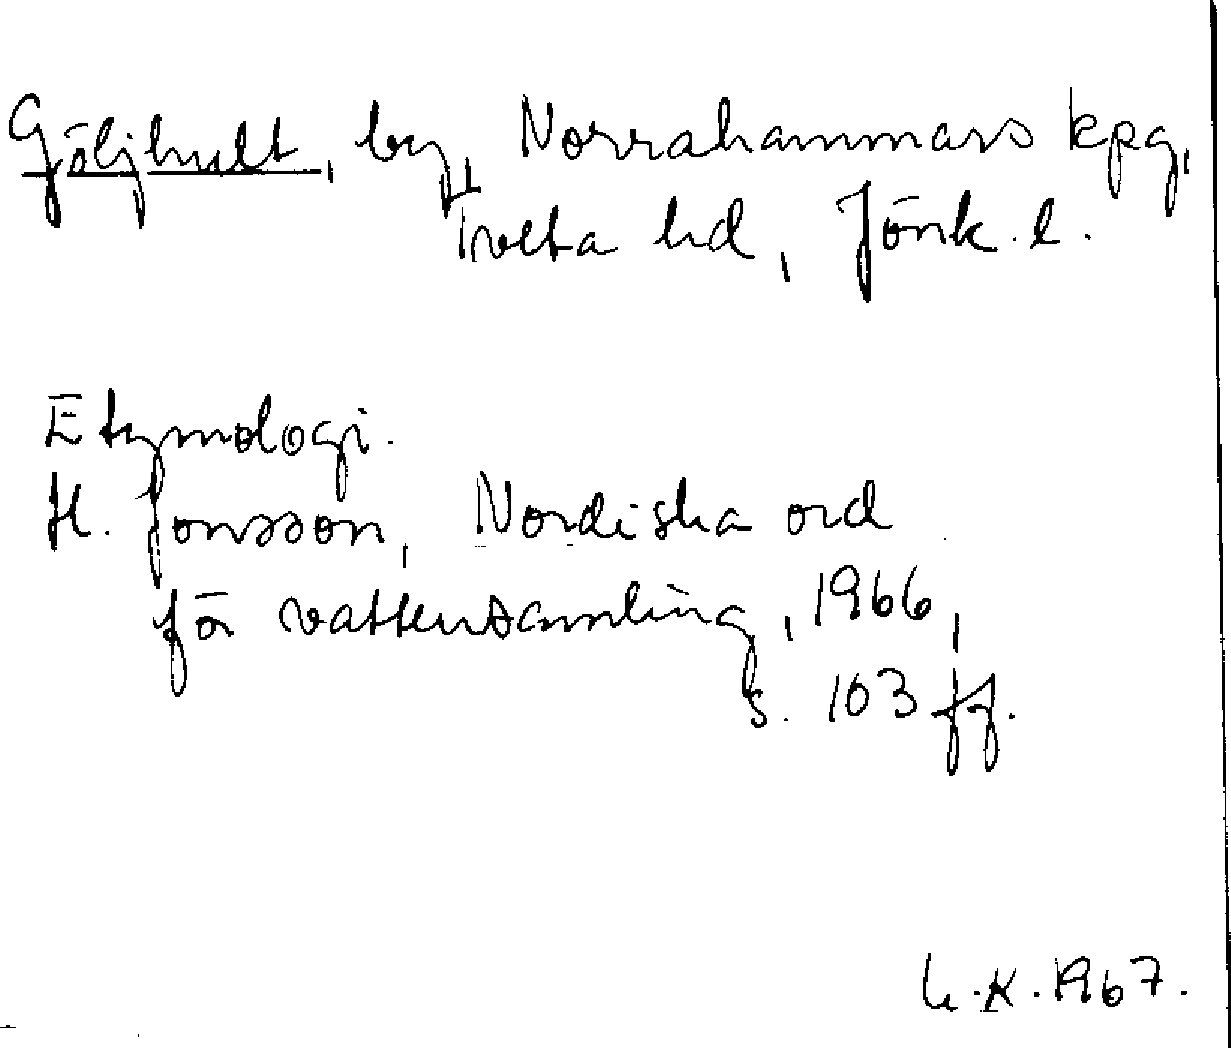 Göljhult, by, Norrahammars kpg,
Tveta hd, Jönk. l.
Etymologi.
H. Jonsson, Nordiska ord
för vattensamling, 1966,
s. 103 ff.
L.K. 1967.